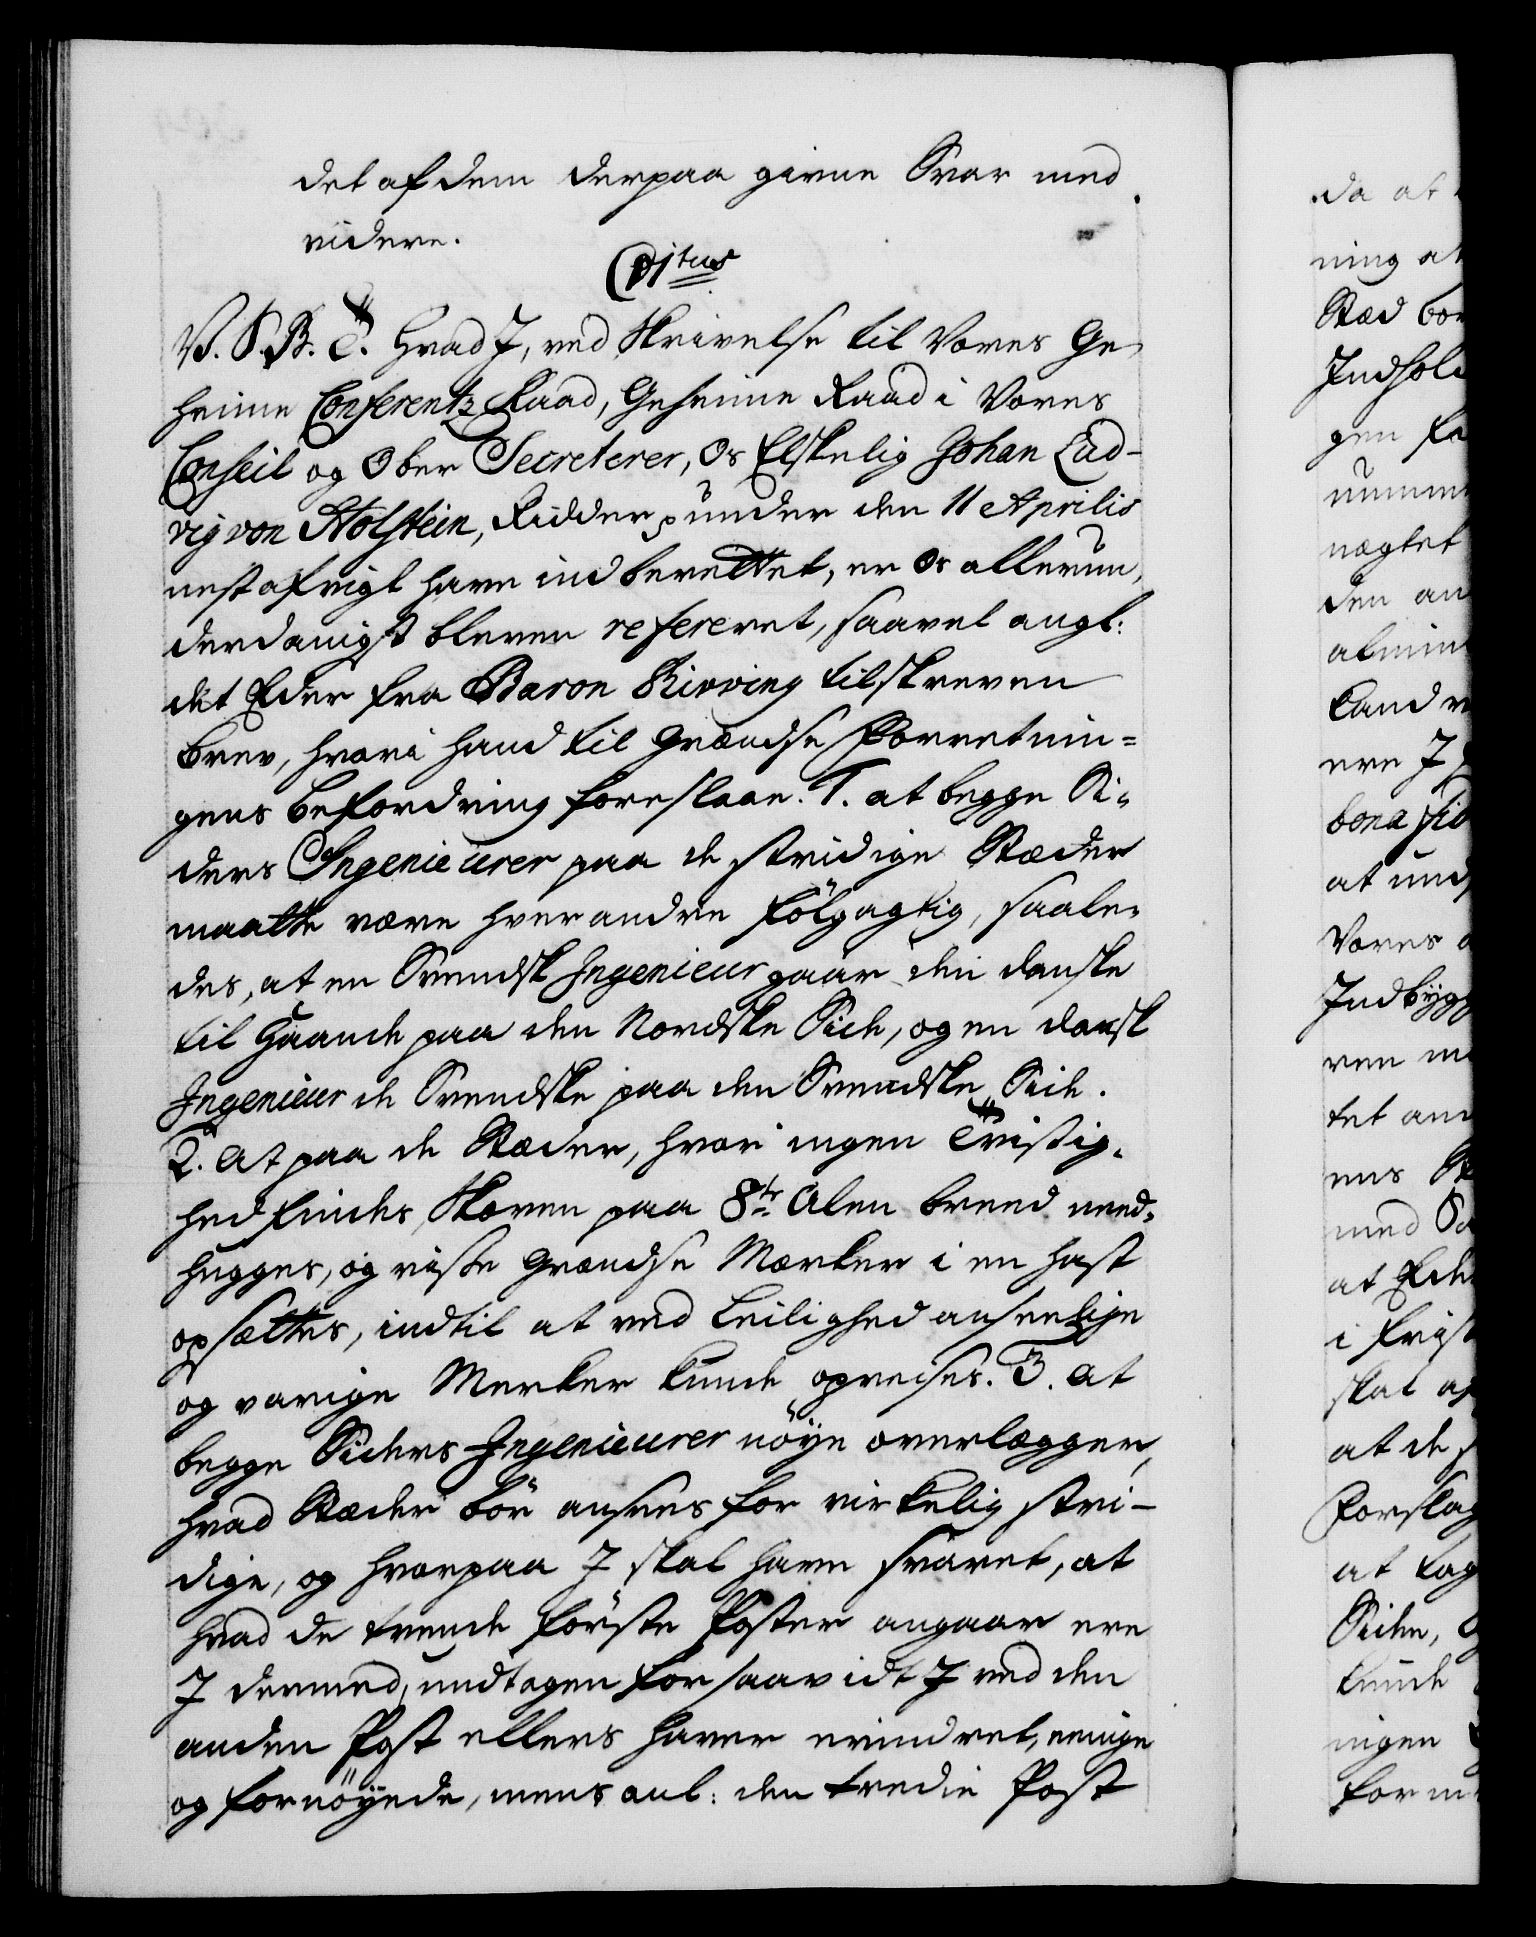 det af dem derpaa givne Svar med
videre.
Citus
V. S. B. T. Hvad I, ved Skrivelse til Vores Ge-
heime Conferentz Raad, Geheime Raad i Vores
Conseil og Ober Secreterer, Os Elskelig Johan Lud-
vig von Holstein, Ridder, under den 11 Aprilis
nestafvigt have indberettet, er Os allerun-
derdanigst bleven refereret, saavel angl:
det Eder fra Baron Ribbing tilskreven
brev, hvori hand til Grændse Forretnin-
gens befordring foreslaar. 1. at begge Si-
ders Ingenieurer paa de stridige Stæder
maatte være hver andre følgagtig, saale-
des, at en Svendsk Ingenieur gaar den danske
til Haande paa den Nordske Side, og en dansk
Ingenieur de Svendske paa den Svendske Side.
2. At paa de Stæder, hvor ingen Tvistig-
hed findes, Skoven paa 8te Alen breed ned-
hugges, og visse Grændse Mærker i en hast
opsættes, indtil at ved Leilighed anseelige
og varige Merker kunde opreises. 3. At
begge Siders Ingenieurer nøye overlægger,
hvad Stæder bør ansees for virkelig stri-
dige, og hvorpaa I skal have svaret, at
hvad de tvende første Poster angaar ere
I dermed, undtagen forsaavidt I ved den
anden Post ellers haver erindret, eenige
og fornøyede, mens anl: den tredie Post
da at
ning at
Stæd bor
Indhold
gen fr
numme
nægtet
den an
almin
Land
ere I
bona fid
at und
Vores
Indbygg
ven m
tet an
ens St
med
at Ede
i frist
skal af
at de
Forslag
at tag
Siden,
kunde
ingen
for